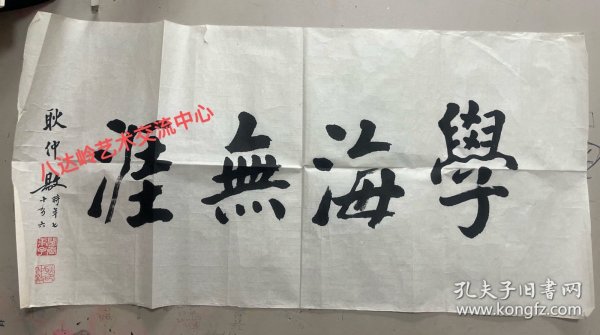 學海無涯
耿仲敭
時年七
十有六
八达岭艺术交流中心
孔夫子旧书网
www.kongfz.com